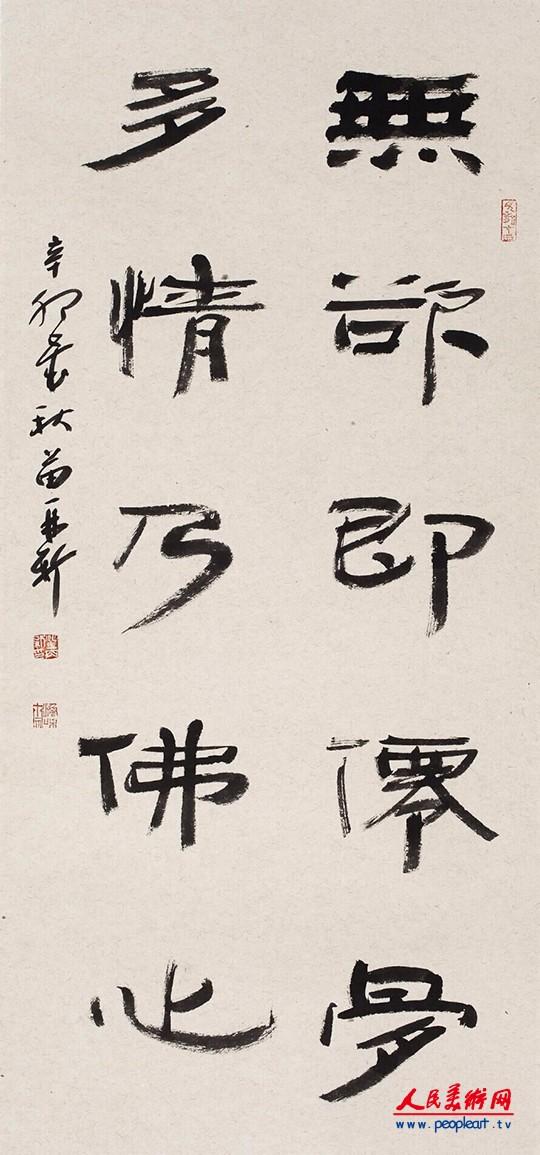 無欲即僊骨
多情乃佛心
辛卯秋苗再新
人民美術网
www.peopleart.tv